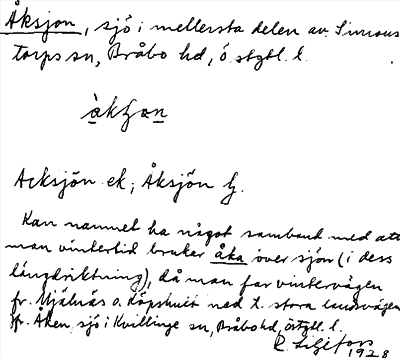 Åksjon, sjö i mellersta delen av Simons
torps sn, Bråbo hd, ö stgtl. l.
Acksjön ek; Åksjön
Kan namnet ha något samband med att
man vintertid brukar åka över sjön (i dess
längdriktning), då man far vintervägen
fr. Mjälnäs o. Köpshult ned t. stora landsvägen
Jfr. Åken, sjö i Kvillinge sn, Bråbo hd, östgtl. l.
1928